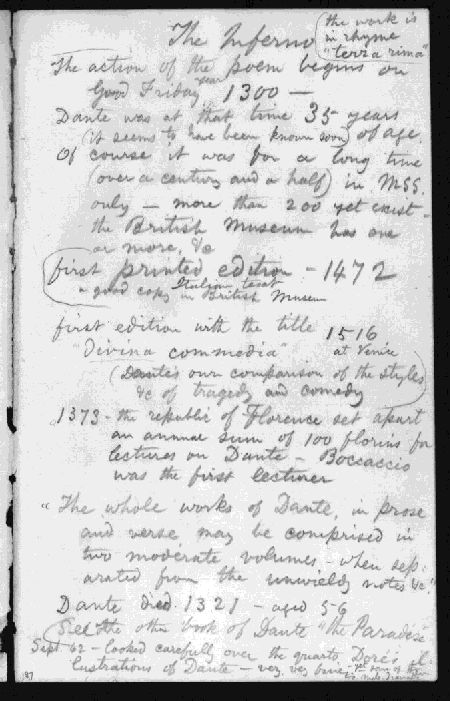 The Inferno
(the work is
in rhyme
"terza rima"
The action of the poem begins on
Good Friday year 1300 —
Dante was at that time 35 years
(it seems to have been known soon) of age
Of course it was for a long time
(over a century and a half) in MSS.
only — more than 200 yet exist —
the British Museum has one
or more, &c
first printed edition — 1472
a good copy Italian text
in British Museum
first edition with the title 1516
"Divina commedia" at Venice
(Dante's own comparison of the styles
&c of tragedy and comedy
1373 - the republic of Florence set apart
an annual sum of 100 florins for
lectures on Dante — Boccaccio
was the first lecturer
"The whole works of Dante, in prose
and verse, may be comprised in
two moderate volumes — when sep-
arated from the unwieldy notes &c."
Dante died 1321 — aged 56
See the other book of Dante "the Paradise
Sept '62 — looked carefully over the quarto Doré's il-
lustrations of Dante — very, very
187